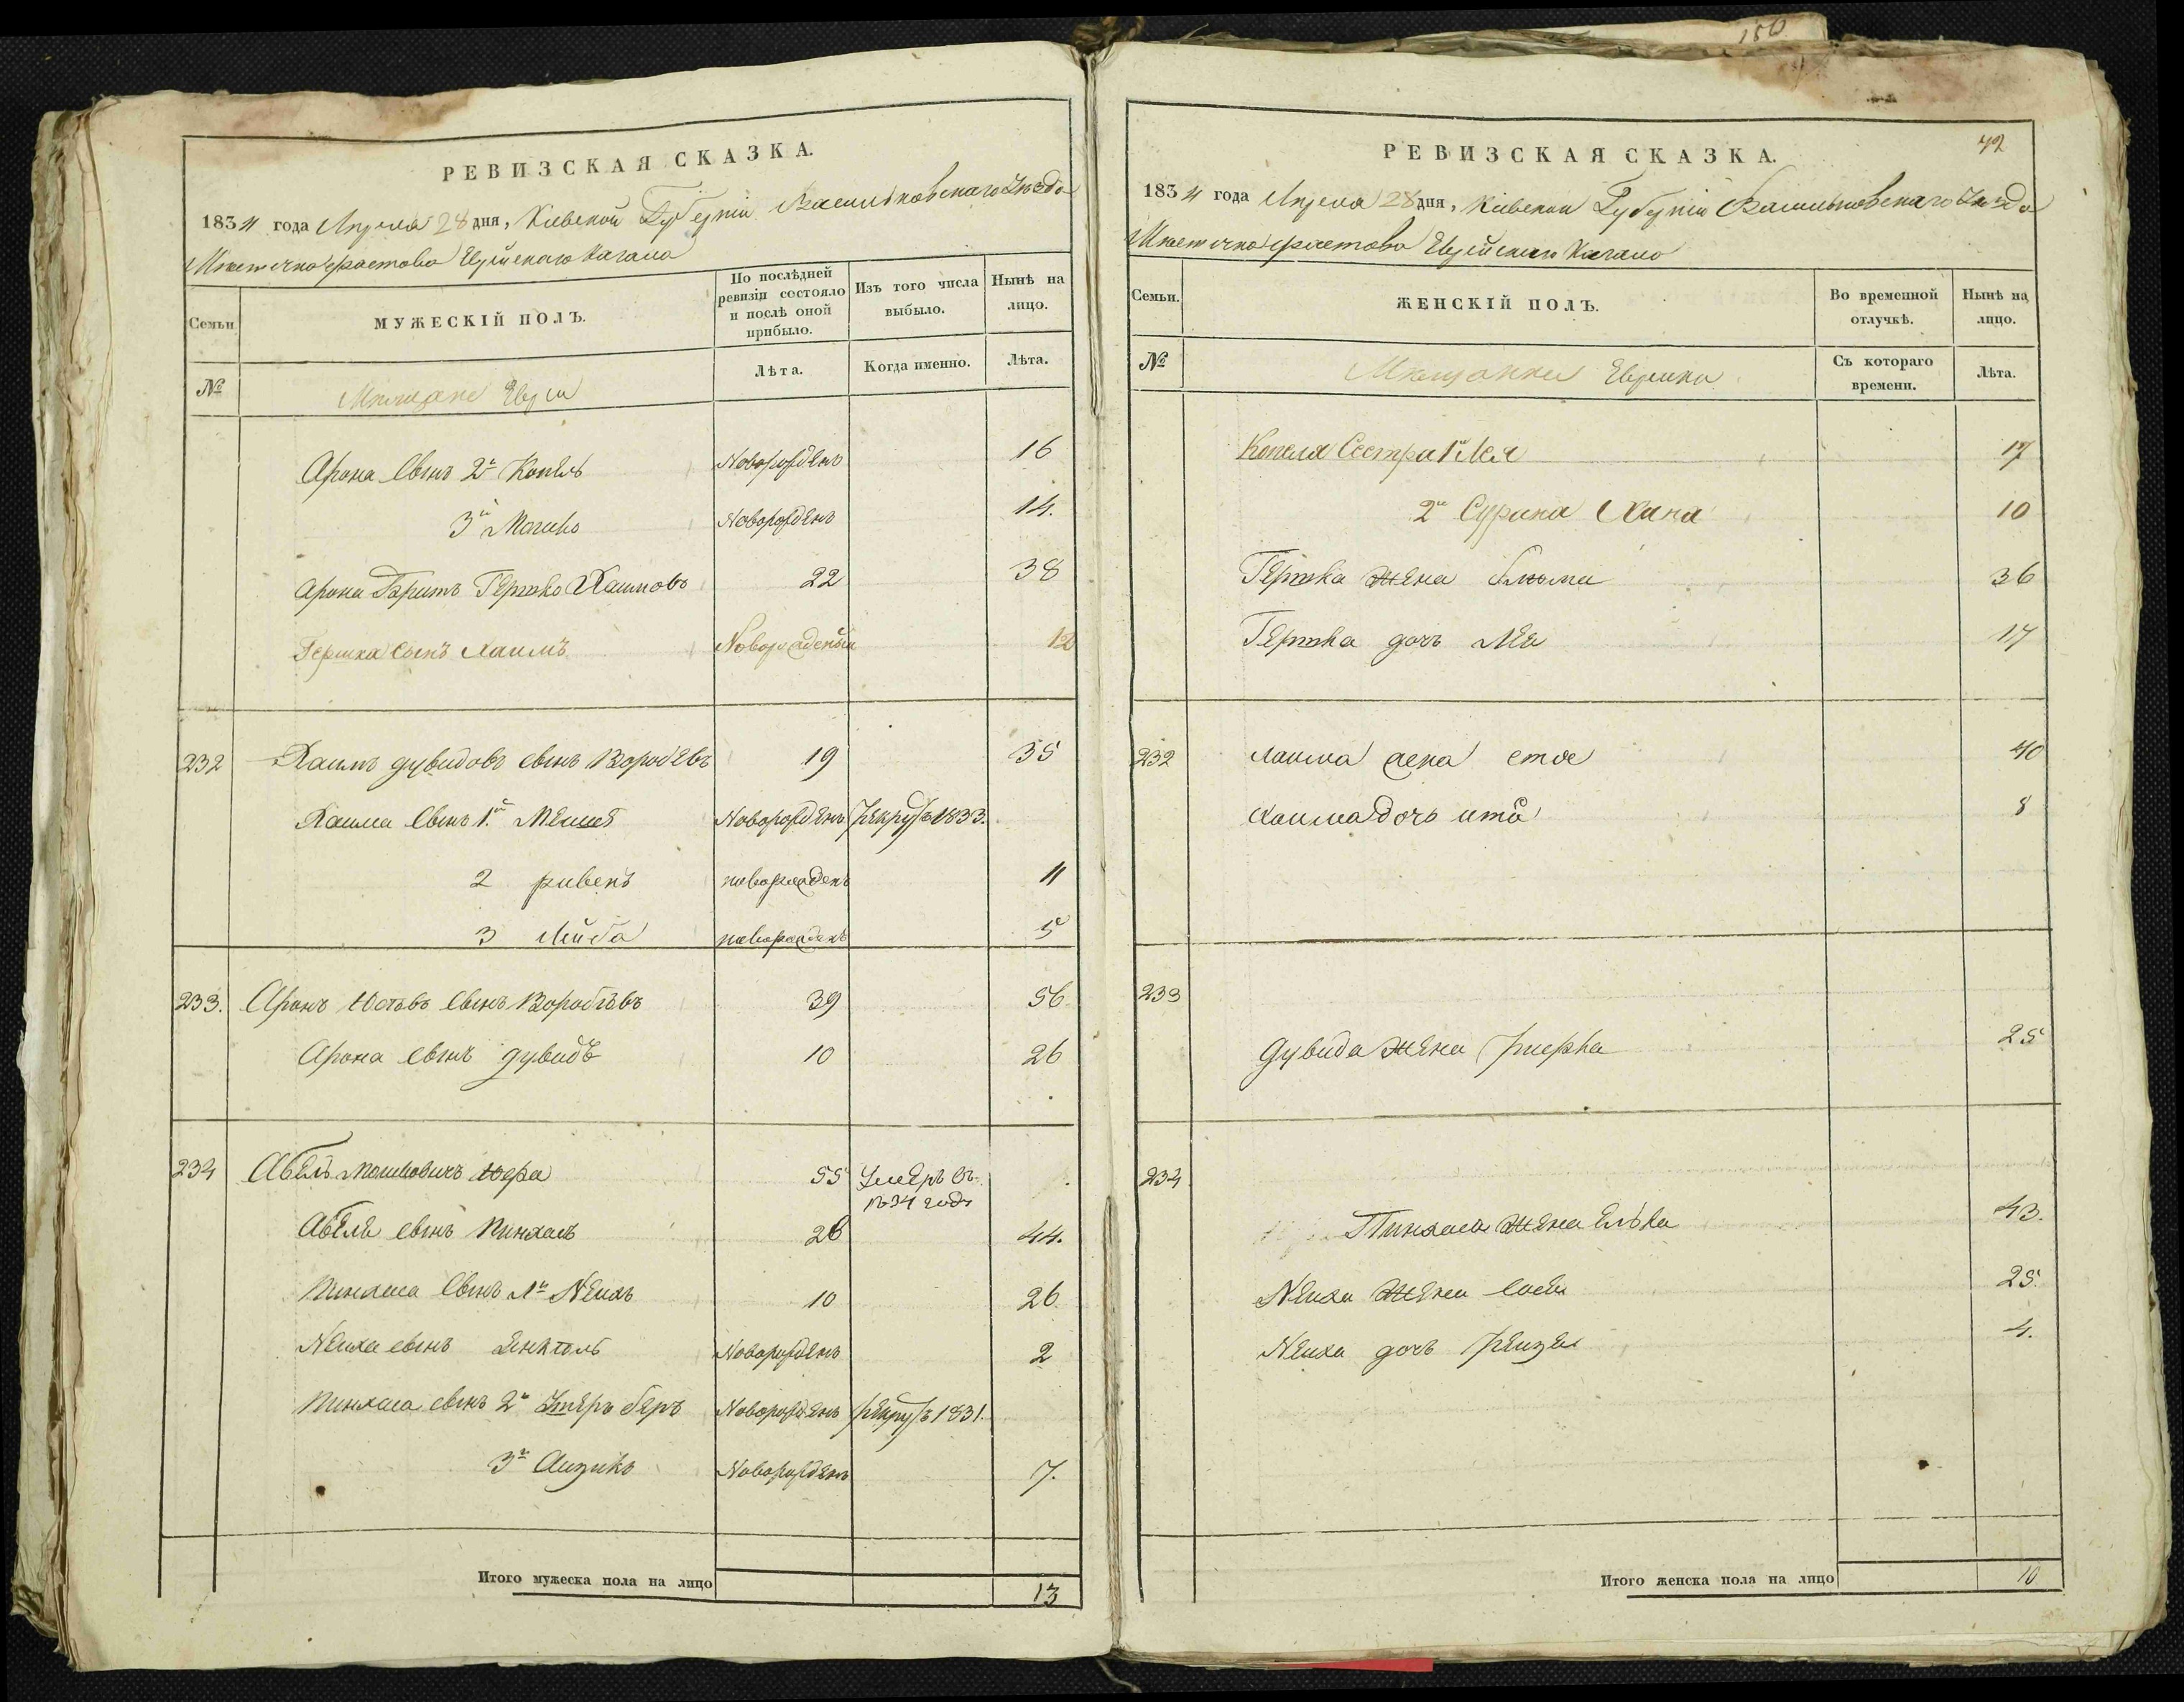 150
РЕВИЗСКАЯ СКАЗКА.
1834 года Апреля 28 дня, Кіевской Губерніи Васильковскаго Уѣзда
Мѣстечка Фастова Еврейскаго Кагала
Семьи.
МУЖЕСКІЙ ПОЛЪ.
По послѣдней ревизіи состояло и послѣ оной прибыло.
Изъ того числа выбыло.
Нынѣ на лицо.
№
Мѣщане Евреи
Лѣта.
Когда именно.
Лѣта.
Арона сынъ 2й Копель Новорожденъ 16
3й Мошко Новорожденъ 14.
Арона братъ Гершко Хаимовъ 22 38
Гершка сынъ Хаимъ Новорожденый 12
232 Хаимъ Дувидовъ сынъ Воробевъ 19 35
Хаима сынъ 1.й Новорожденъ рекрутъ 1833.
2 рувенъ новорожденъ 11
3 Лейба новорожденъ 5
233. Аронъ сынъ Воробьевъ 39 56
Арона сынъ дувидъ 10 26
234 Абель Мошковичъ 55 Умеръ въ
1834 годѣ
Абеля сынъ Пинхасъ 26 44.
Пинхаса сынъ 1й 10 26
сынъ Новорожденъ 2
Пинхаса сынъ 2й беръ Новорожденъ рекрутъ 1831.
3й Аизикъ Новорожденъ 7.
Итого мужеска пола на лицо 13
42
РЕВИЗСКАЯ СКАЗКА.
1834 года Апреля 28 дня, Кіевской Губерніи Васильковскаго Уѣзда
Мѣстечка Фастова Еврейскаго Кагала
Семьи.
ЖЕНСКІЙ ПОЛЪ.
Во временной отлучкѣ.
Нынѣ на лицо.
№
Мѣщанки Еврейки
Съ котораго времени.
Лѣта.
Копеля Сестра 1я Лея 17
2я Сурана Хана 10
Гершка жена блюма 36
Гершка дочь Лея 17
232 Хаима жена 40
Хаима дочь ита 8
233
Дувида жена 25
234
Пинхаса жена Елька 43.
жена 25.
дочь рейзел 4.
Итого женска пола на лицо 10